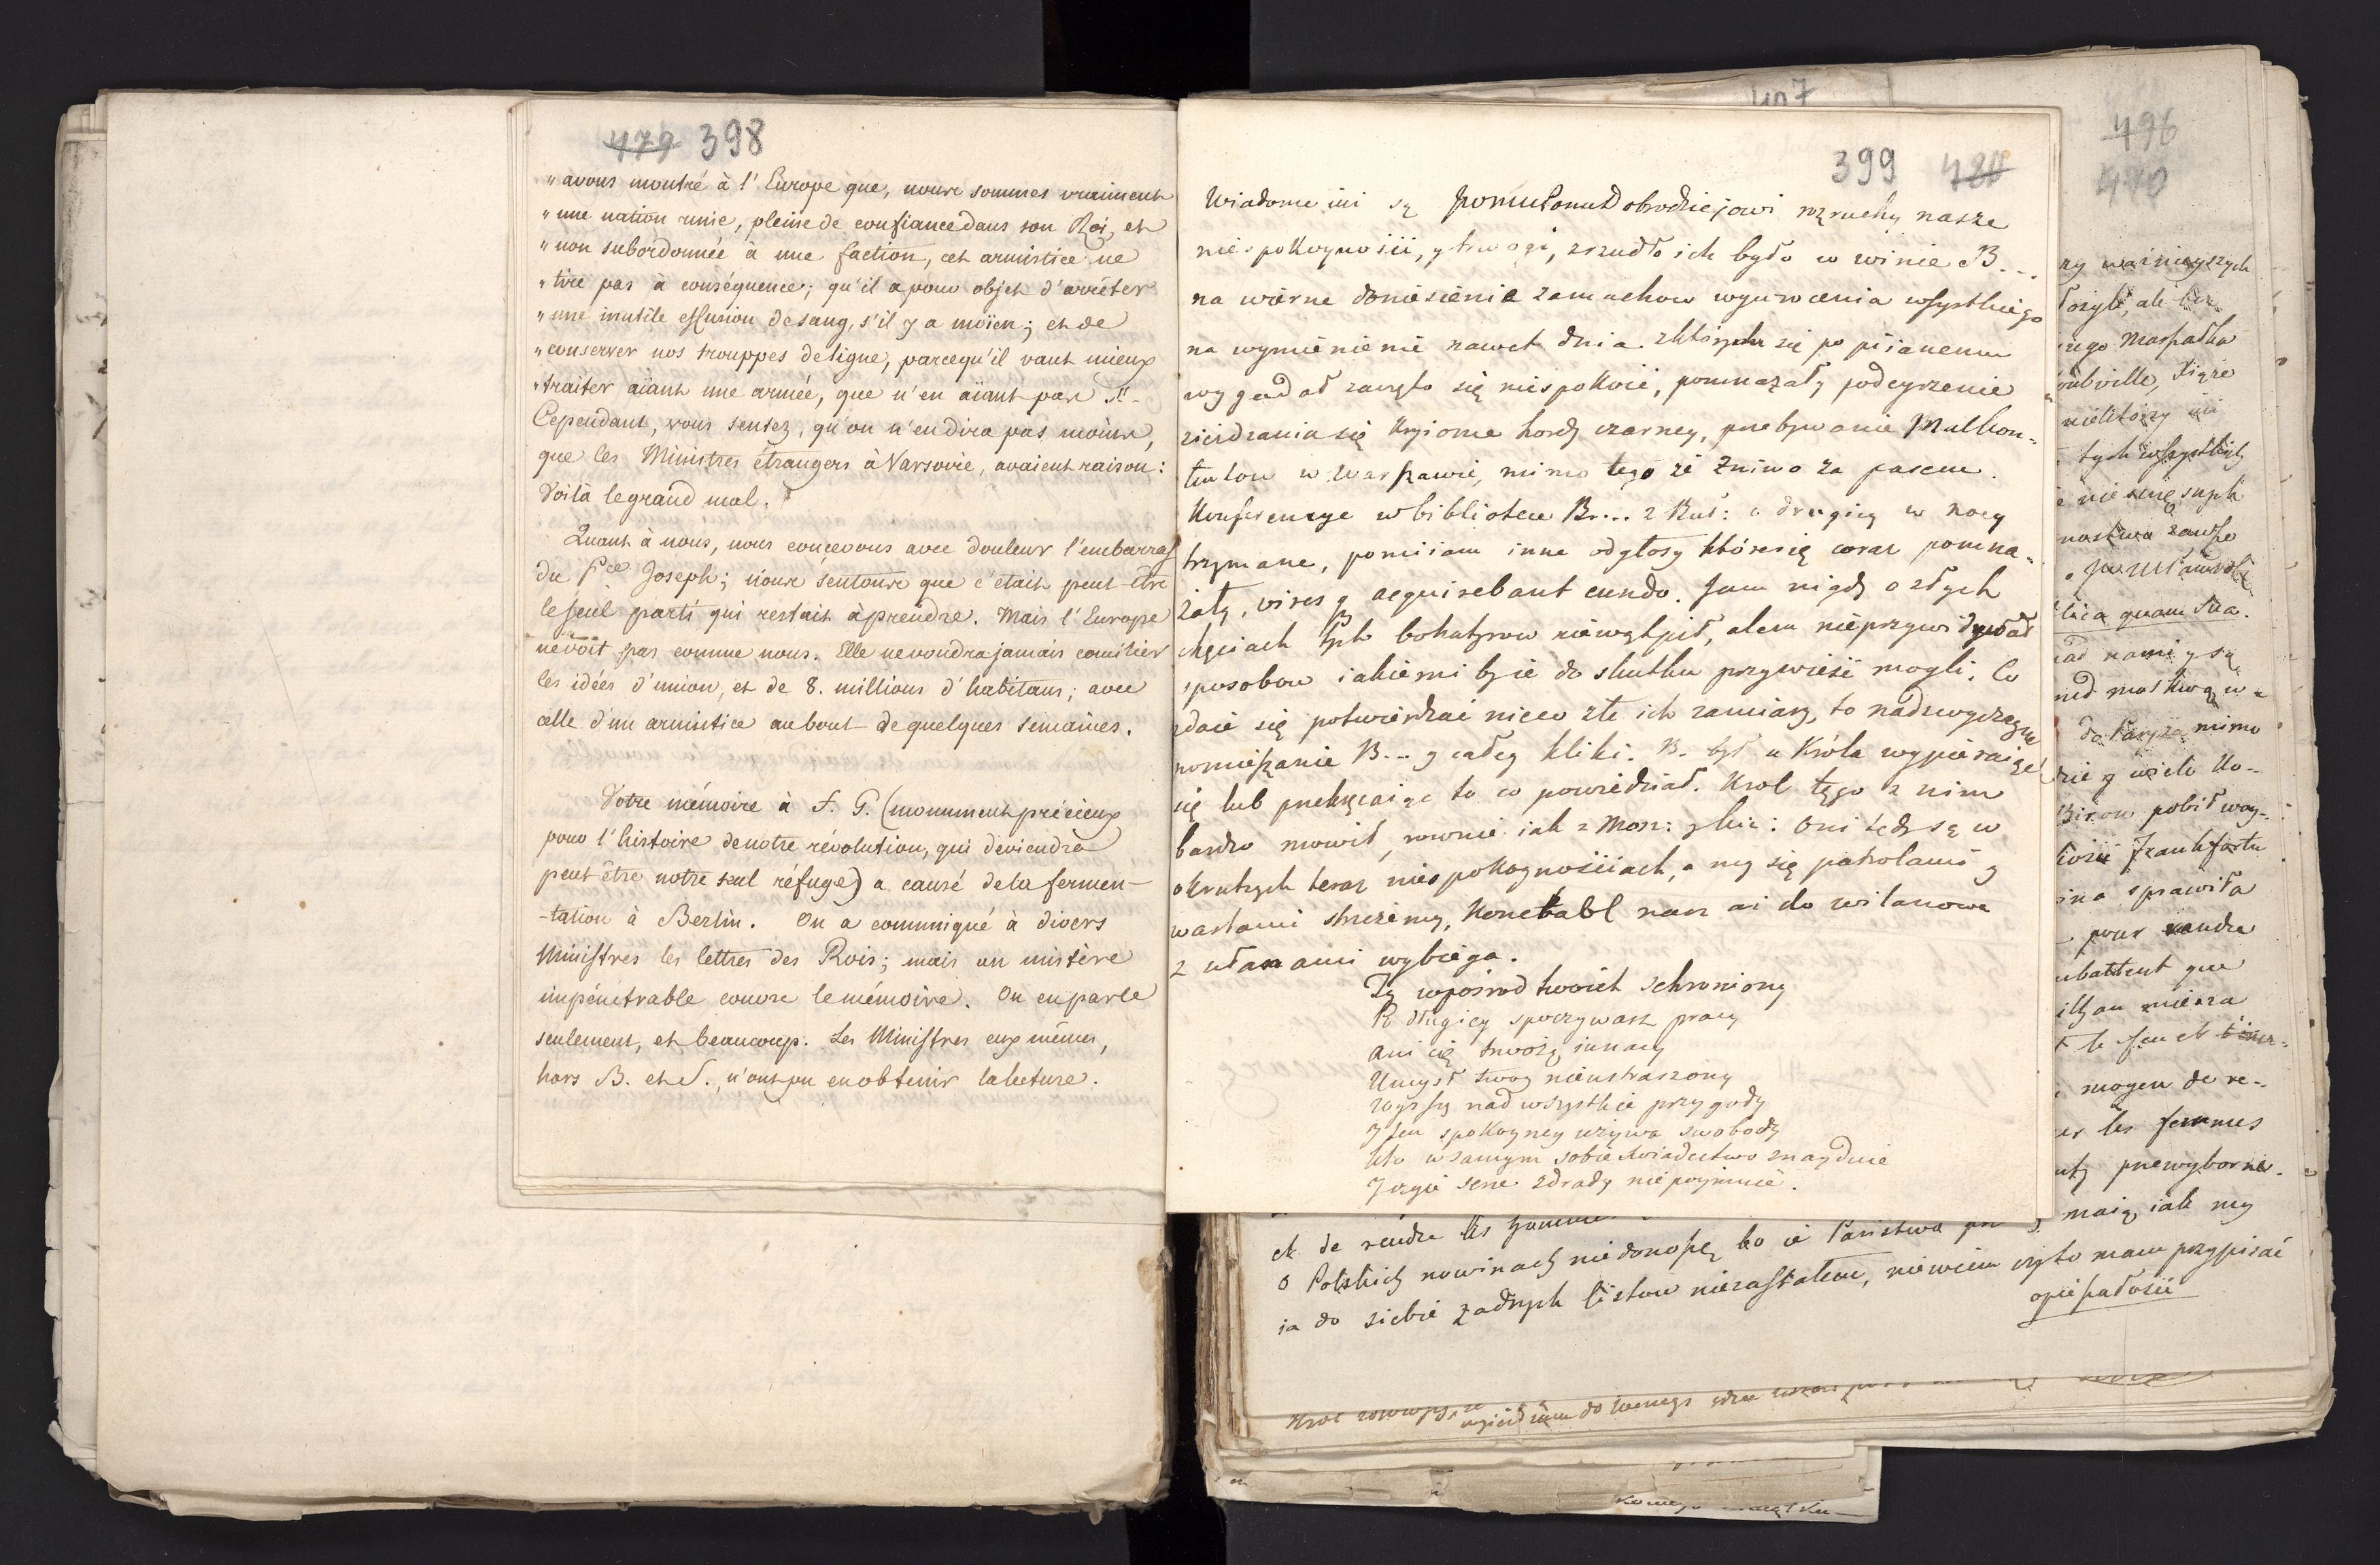 479 398
"avons montré à l'Europe que, nous sommes vraiment
"une nation unie, pleine de confiance dans son Roi, et
"non subordonnée à une faction, cet armistice ne
"tire pas à conséquence; qu'il a pour objet d'arrêter
"une inutile effusion de sang, s'il y a moïen; et de
"conserver nos trouppes de ligne, parcequ'il vaut mieux
"traiter aïant une armée, que n'en aïant pas!!
Cependant, vous sentez, qu'on n'en dira pas moins,
que les Ministres étrangers à Varsovie, avaient raison:
Voilà le grand mal.
Quant à nous, nous concevons avec douleur l'embarras
du Pce Joseph; nous sentons que c'était peut-être
le seul parti qui restait à prendre. Mais l'Europe
ne voit pas comme nous. Elle ne voudra jamais concilier
les idées d'union, et de 8. millions d'habitans; avec
celle d'un armistice au bout de quelques semaines.
Votre mémoire à F. G. (monument précieux
pour l'histoire de notre révolution, qui deviendra
peut-être notre seul réfuge) a causé de la fermen-
-tation à Berlin. On a communiqué à divers
Ministres les lettres des Rois; mais un mistère
impénétrable couvre le mémoire. On en parle
seulement, et beaucoup. Les Ministres eux mêmes,
hors B. et S., n'ont pu en obtenir la lecture.
407
399 480
Wiadome iui są Dobrodziejowi rozruchy nasze
niespokoynosci, y trwogi, zrzudło ich było w winie B...
na wierne doniesienie zamachow wywrocenia wszystkiego
na wymienienie nawet dnia z których się po pijanemu
wygadał zawzęto się niespokoić, pomnażały podeyrzenie
zieidzania się kryiome hordy czarney, przebywanie Malkon-
tentow w Warszawie, mimo tego ze Zniwo za pasem.
Konferencye w bibliotece Br... z Rus: o drugiey w nocy
trzymane, pomiiam inne odgłosy które się coraz pomna-
żały, vires qz acquirebant eundo. Jam nigdy o złych
chęciach tych bohatyrow niewątpił, alem nieprzywidywał
sposobow iakiemi by ie do skutku przywieść mogli. Co
zdaie się potwierdzać nieco złe ich zamiary, to nadzwyczayne
pomieszanie B... y całey kliki. B. był u Króla wypieraiąc
się lub przekręcaiąc to co powiedział. Krol tęgo z nim
bardzo mowił, rownie iak z Mosz: y Kic: Oni tedy są w
okrutnych teraz niespokoynościach, a my się patrolami y
wartami strzeżemy, Konetabl nasz aż do wilanowa
z ułanami wybiega.
Ty wpośrod twoich schroniony
Po długiey spoczywasz pracy
Ani cię trwożą innacy
Umysł twoy nieustraszony
Wyższy nad wszystkie przygody
Y ten spokoyney używa swobody
Kto w samym sobie świadectwo znayduie
Y czyie serce zdrady nie poymuie.
496
410
ry ważnieyszych
niego Marszałka
niektórzy iuż
tych wszystkich
nostwa zawsze
lica quam sua.
nad nami y są
nad moskwą w-
do Paryża mimo
pobił woy-
Frankfortu
ina sprawiła
pour rendre
ubattent que
moyen de re-
er les femmes
przewyborne.
maią iak my
et de rendre les hommes
o Polskich nowinach niedonoszę bo ie Państwo
ia do siebie żadnych listow niezastałem, niewiem czy to mam przypisać
opieszałości